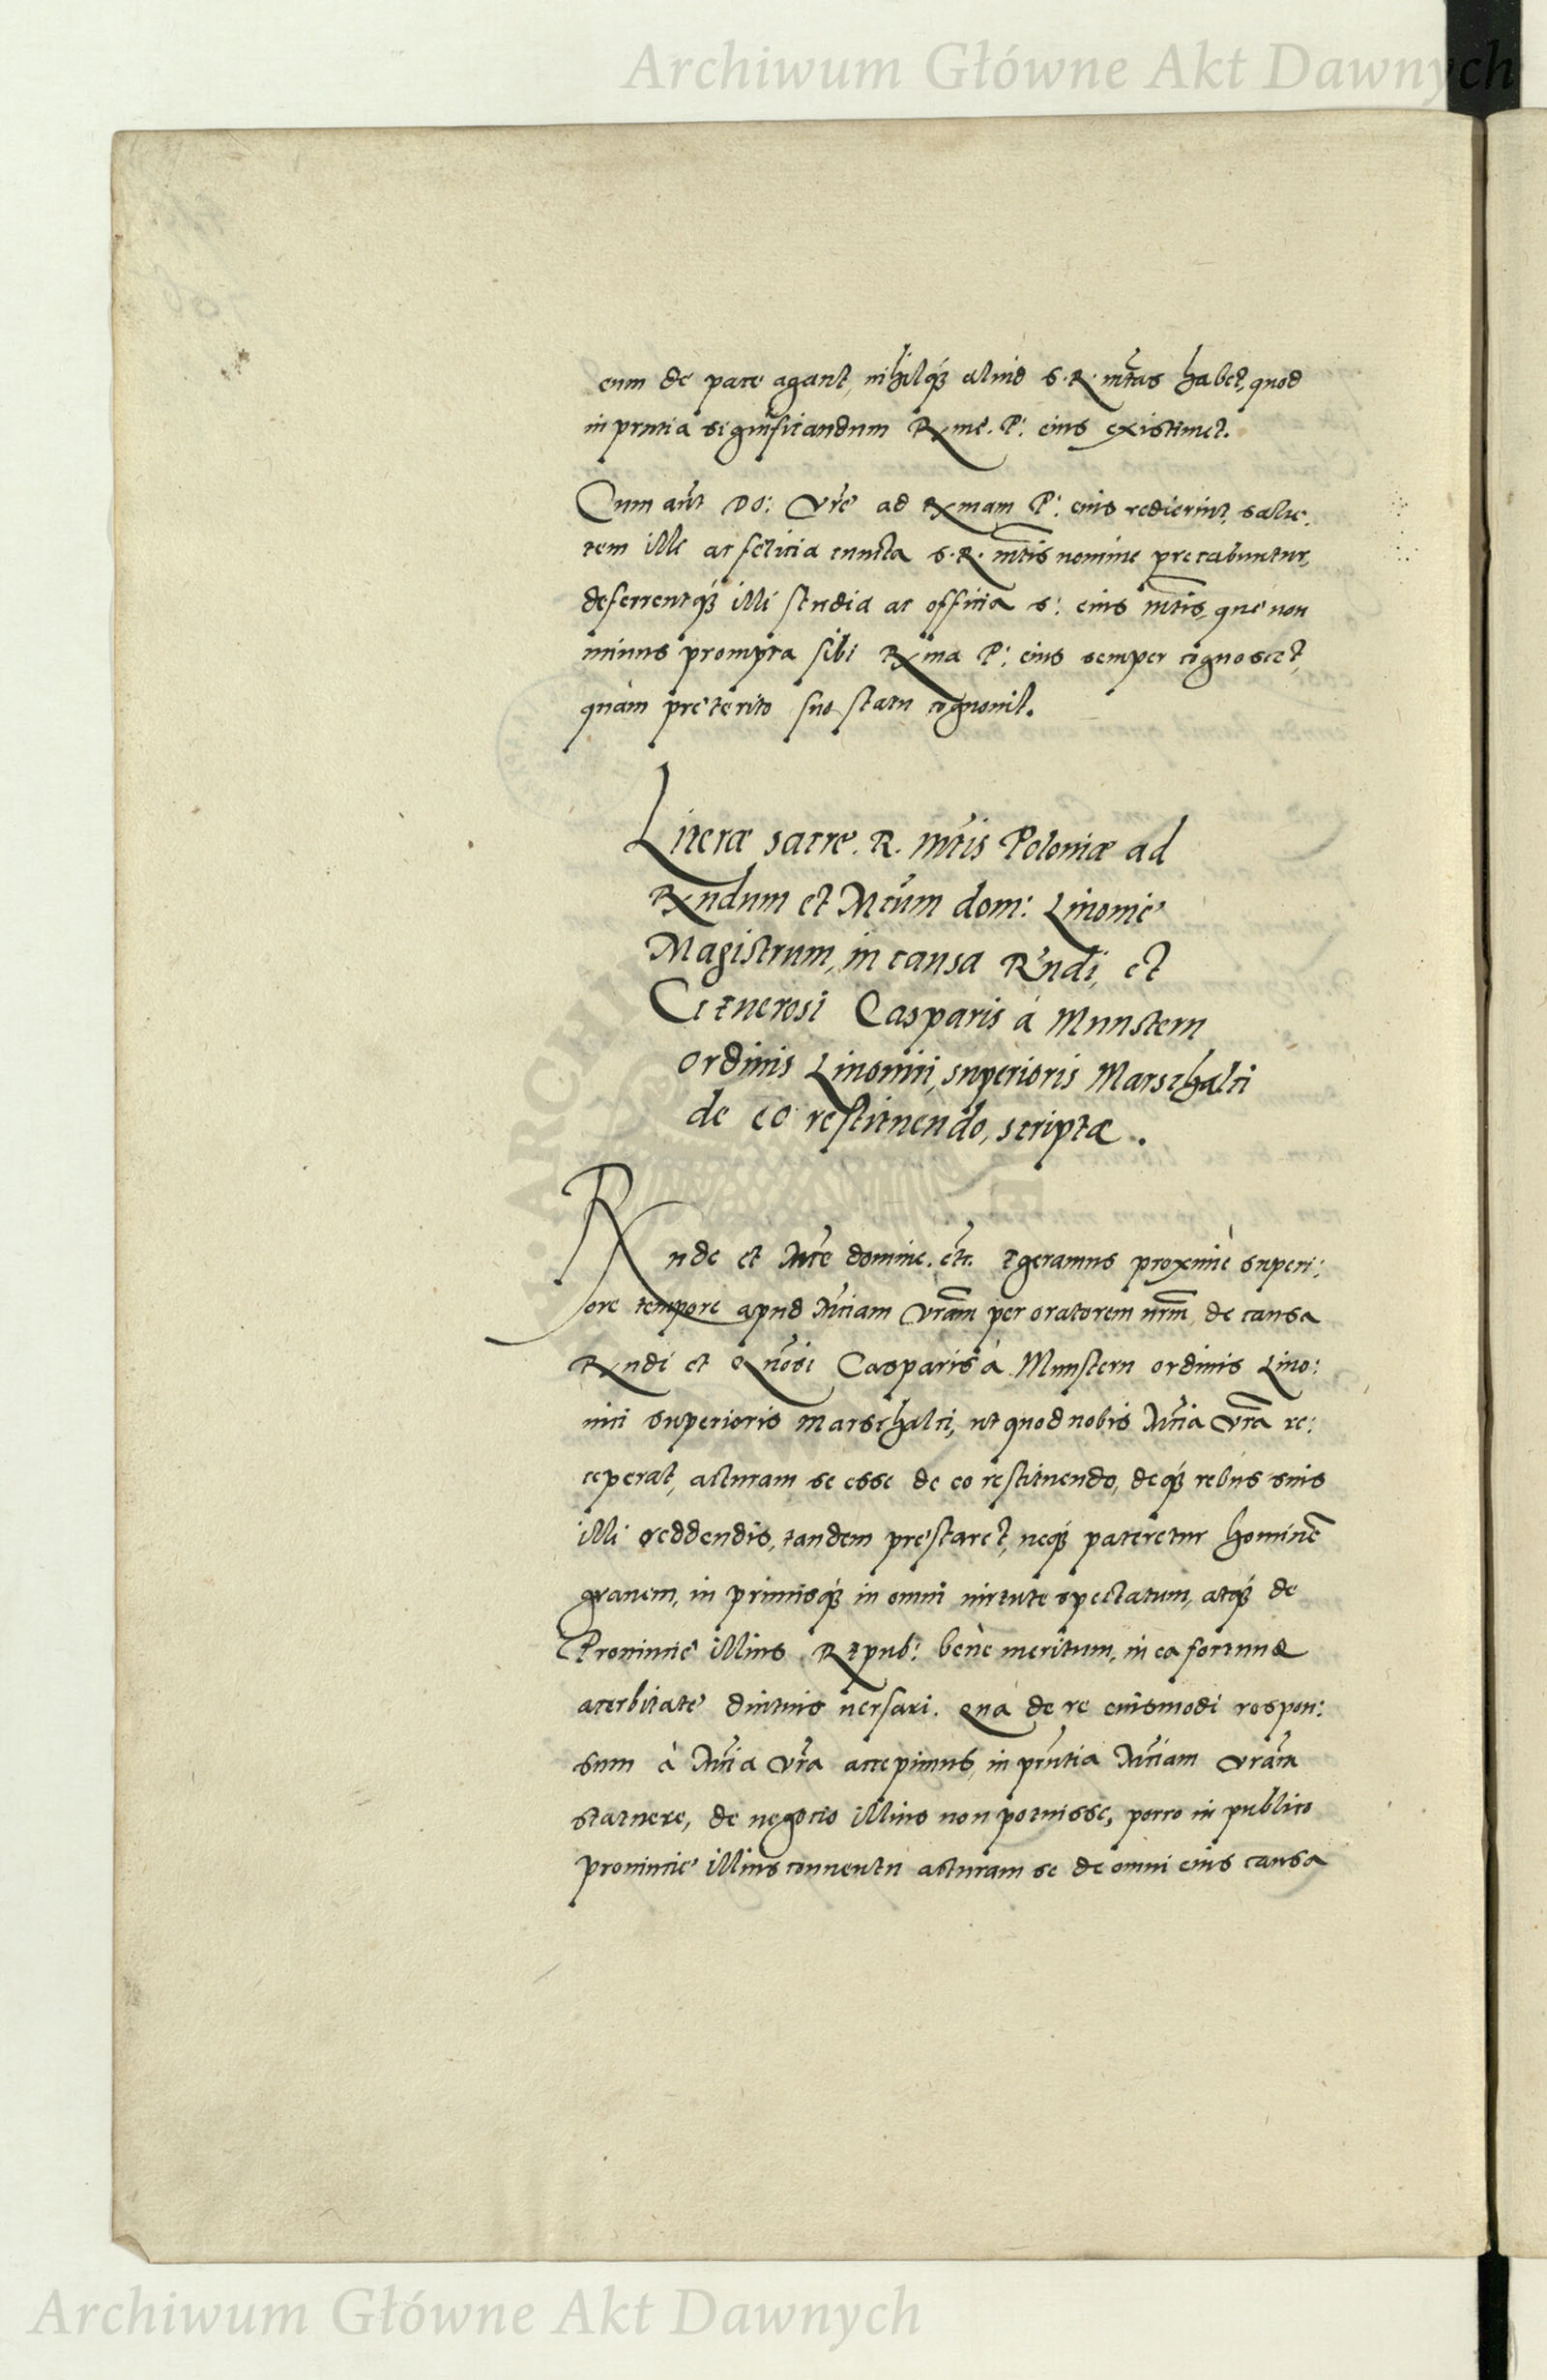 Archiwum Główne Akt Dawnych
eum de pace agant, nihilq́3 aliud S. R. mt̃as habet, quod
in prñtia significandum Rx̃me. P: eius existimet.
Cum aũt DO: Vr̃e ad Rx̃mam P: eius redierint, salu-
tem illi ac felicia cuncta S. R. mt̃is nomine precabuntur,
deferrentq́3 illi studia ac officia S: eius mt̃is, que non
minus prompta sibi Rx̃ma P: eius semper cognoscet,
quàm preterito suo statu cognouit.
Literæ sacre. R. mt̃is Poloniæ ad
Rx̃ndum et Mcũm dom: Liuonie
Magistrum, in causa R̃ndi, et
Generosi Casparis à Munstern
ordinis Liuonici, superioris Marschalci
de eo restituendo, scriptæ.
Rx̃nde et Mce͂ domine. etc. Egeramus proximè superi:
ore tempore apud Mt̃iam Vr̃am per oratorem nr̃m, de causa
Rx̃ndi et Gñosi Casparis à Munstern ordinis Liuo:
nici superioris Marschalci, ut quod nobis Mt̃ia Vr̃a re:
ceperat, acturam se esse de eo restituendo, deq́3 rebus suis
illi reddendis, tandem prestaret, neq́3 pateretur hominẽ
grauem, in primisq́3 in omni uirtute spectatum, atq́3 de
Prouincie illius Repub: benè meritum, in ea fortunæ
acerbitate diutius uersari. Qua de re eiusmodi respon:
sum à Mt̃ia Vr̃a accepimus, in prñtia Mt̃iam Vr̃am
statuere, de negocio illius non potuisse, porro in publico
prouincie illius conuentu acturam se de omni eius causa
Archiwum Główne Akt Dawnych